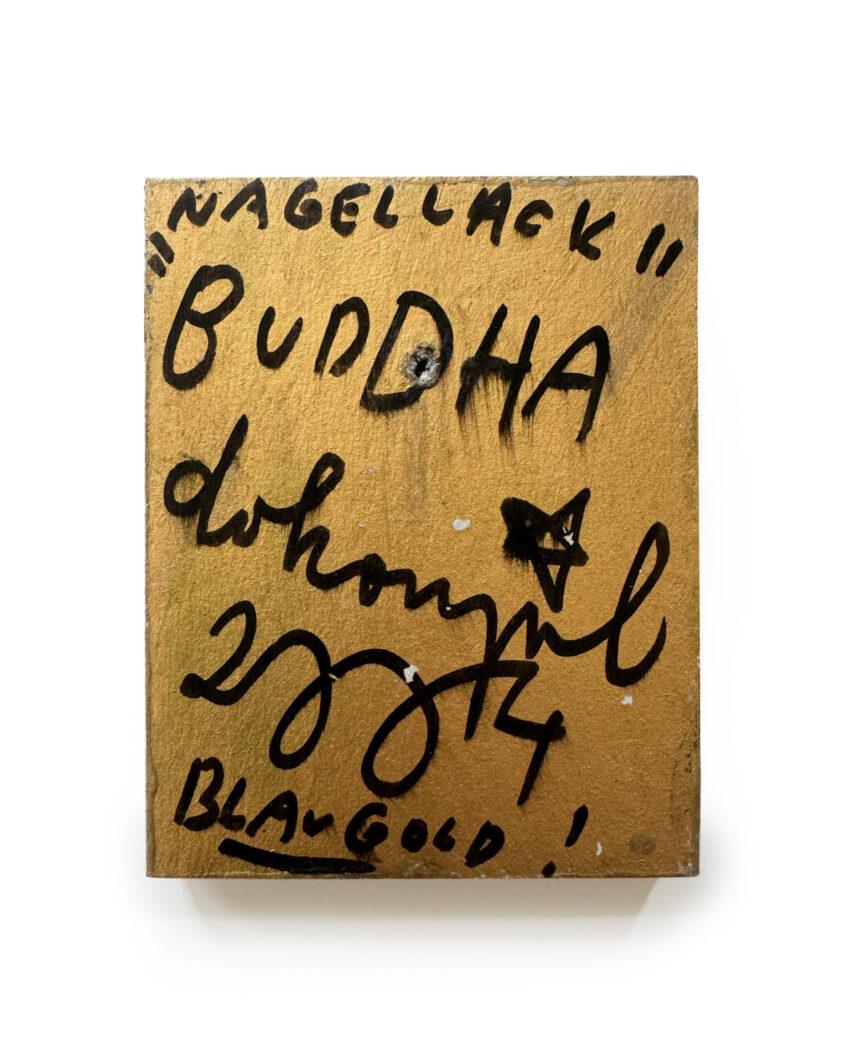 „NAGELLACK"
BUDDHA
dokoupil
2004
BLAUGOLD!